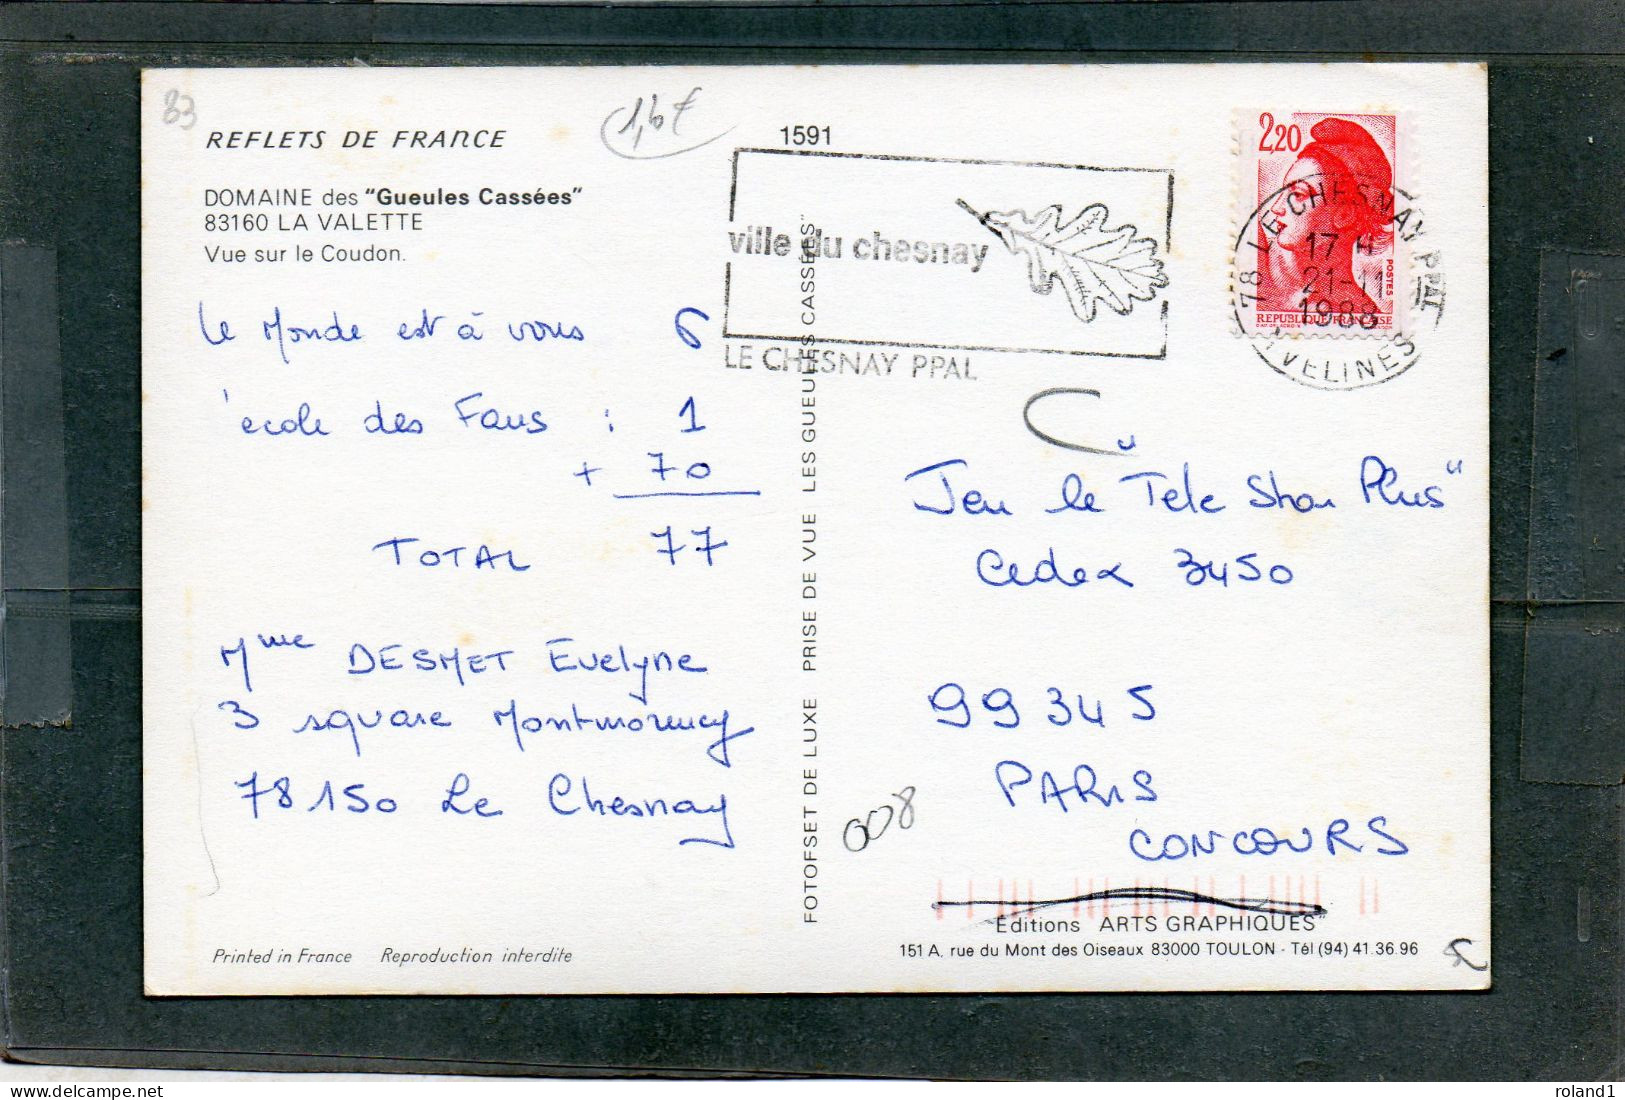 83
1,6€
REFLETS DE FRANCE
1591
DOMAINE des "Gueules Cassées"
83160 LA VALETTE
Vue sur le Coudon.
ville du chesnay
LE CHESNAY PPAL
2,20
POSTES
REPUBLIQUE FRANÇAISE
78 LE CHESNAY PPAL
17 H
21-11
1988
YVELINES
le Monde est à vous 6
école des Fans : 1
+ 70
TOTAL 77
Mme DESMET Evelyne
3 square Montmorency
78150 Le Chesnay
FOTOFSET DE LUXE PRISE DE VUE LES GUEULES CASSÉES"
Jeu le "Tele Star Plus"
Cedex 3450
99345
PARIS
CONCOURS
008
Éditions ARTS GRAPHIQUES"
151 A, rue du Mont des Oiseaux 83000 TOULON - Tél (94) 41.36.96
Printed in France Reproduction interdite
roland1